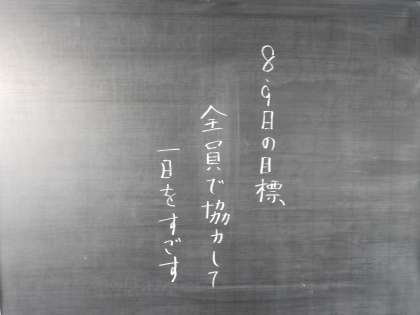 8・9日の目標
全員で協力して
一日をすごす